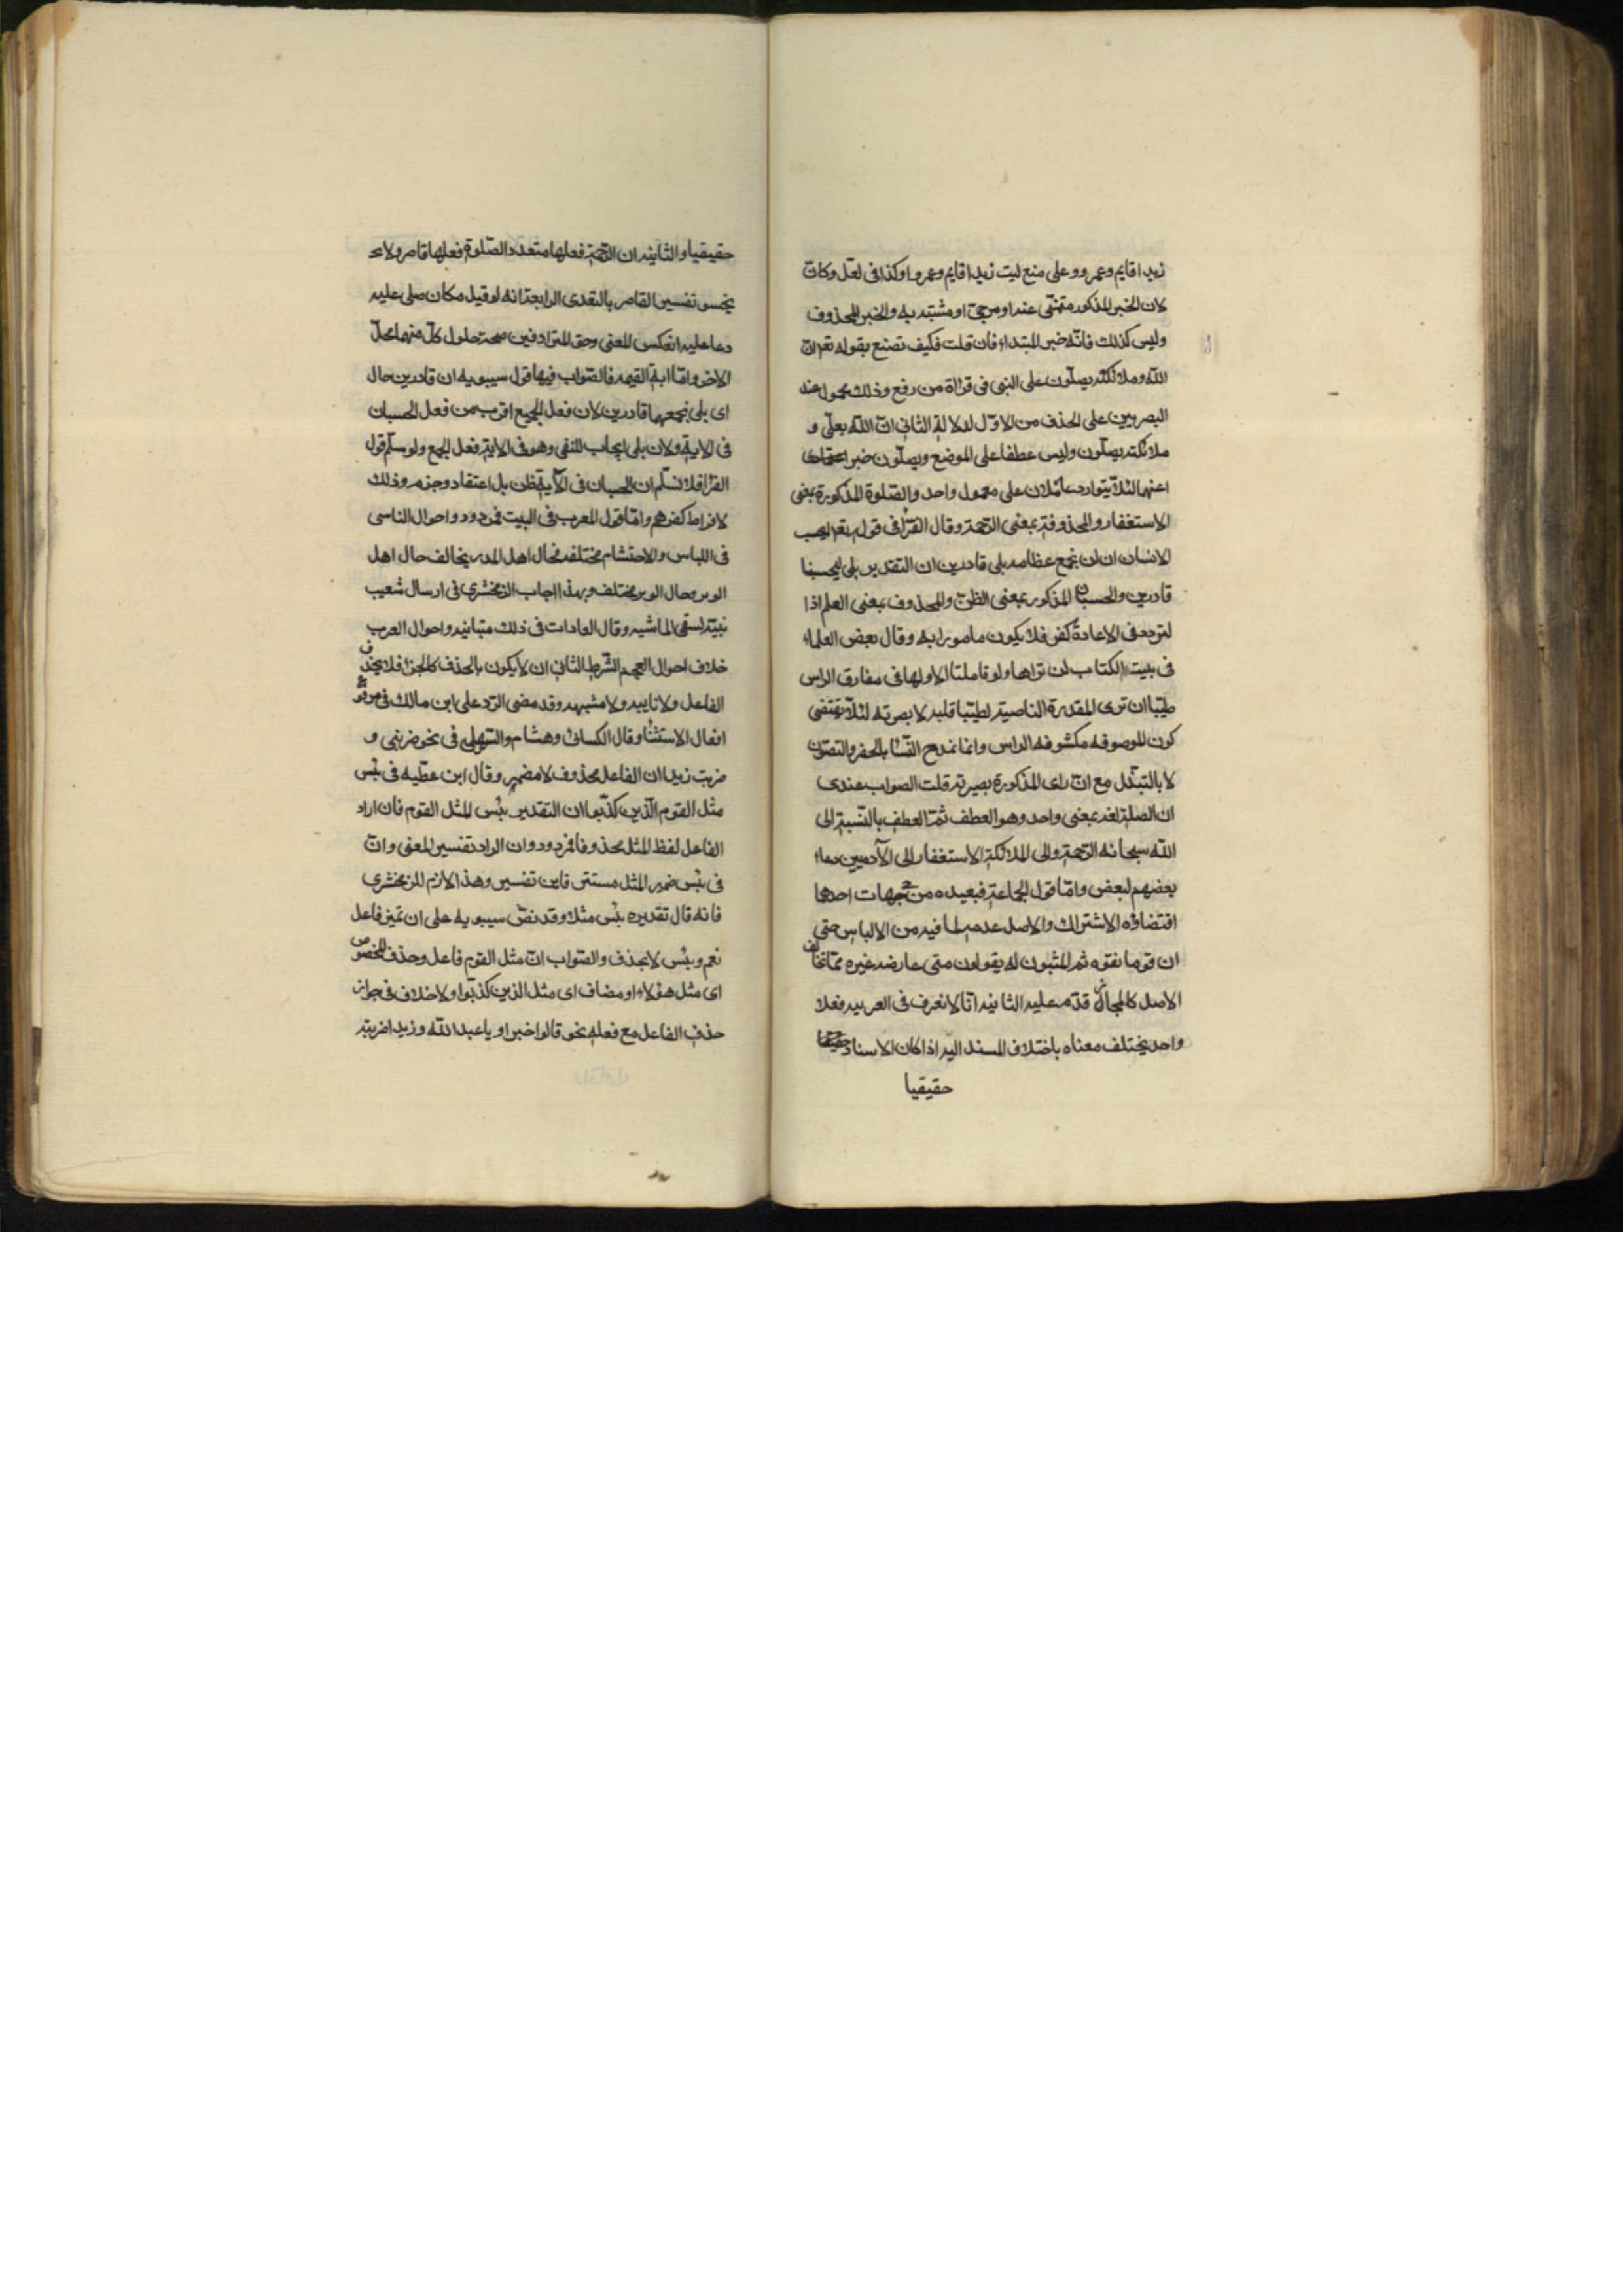 زيدا قايم وعمرو وعلى منع ليت زيدا قايم وعمرو اوكذا فى لعل وكان
لان الخبر المذكور متمنّى عنه او مرجىّ او مشبّه به والخبر المحذوف
وليس كذلك فانّه خبر المبتداء فان قلت فكيف تصنع بقوله تع ان
الله وملائكته يصلّون على النبى فى قراة من رفع وذلك محمول عند
البصريين على الحذف من الاوّل لدلالة الثانى انّ الله يصلّى و
ملائكته يصلّون وليس عطفا على الموضع ويصلّون خبرا
عنهما لئلا يتوارد عاملان على معمول واحد والصّلوة المذكورة بمعنى
الاستغفار والمحذوفة بمعنى الرّحمة وقال الفرّا فى قوله تع ايحسب
الانسان ان لن نجمع عظامه بلى قادرين ان التقدير بلى ليحسبنا
قادرين والحسبان المذكور بمعنى الظنّ والمحذوف بمعنى العلم اذا
لتردد فى الاعادة كفر فلا يكون مامورا به وقال بعض العلماء
فى بيت الكتاب لن تراها ولو تاملت الا ولها فى مفارق الراس
طيبا ان ترى المقدرة الناصبة لطيبا قلبيه لا بصريه لئلا يقتضى
كون الموصوفه مكشوفه الراس وانما تمدح النّسا بالخفر والتصوّن
لا بالتبذّل مع انّ راى المذكورة بصريه قلت الصواب عندى
ان الصلوة لغه بمعنى واحد وهو العطف ثمّ العطف بالنّسبة الى
الله سبحانه الرّحمة والى الملائكة الاستغفار والى الآدميين دعاء
بعضهم لبعض وامّا قول الجماعة فبعيد من جهات احدها
اقتضاؤه الاشتراك والاصل عدمه لما فيه من الالباس حتى
ان قوما نفوه ثم المثبتون له يقولون متى عارضه غيره ممّا يخالف
الاصل كالمجاز قدّم عليه الثانيه انّا لا نعرف فى العربيه فعلا
واحد يختلف معناه باختلاف المسند اليه اذا كان الاسناد
حقيقيا
حقيقيا والثانيه ان الرّحمة فعلها متعدد والصّلوة فعلها قاصر ولا
يحسن تفسير القاصر بالتعدى الرابعة انه لو قيل مكان صلى عليه
دعا عليه انعكس المعنى وحق المترادفين صحة حلول كلّ منهما محلّ
الاخر وامّا اية القيمه فالصّواب فيها قول سيبويه ان قادرين حال
اى بلى نجمعها قادرين لان فعل الجمع اقرب من فعل الحسبان
فى الاية ولان بلى ايجاب للنفى وهو فى الاية فعل الجمع ولو سلّم قول
الفرّا فلا نسلّم ان الحسبان فى الآية ظن بل اعتقاد وجزم وذلك
لافراط كفرهم وامّا قول المعرب فى البيت فمردود واحوال الناس
فى اللباس والاحتشام مختلفه فحال اهل المدر يخالف حال اهل
الوبر وحال الوبر مختلف وبهذا اجاب الزمخشرى فى ارسال شعيب
بنيته لسقى الماشيه وقال العادات فى ذلك متباينه واحوال العرب
خلاف احوال العجم الشّرط الثانى ان لا يكون بالحذف كالجزء فلا يحذف
الفاعل ولا نايبه ولا مشبهه وقد مضى الرّد على ابن مالك فى مرفوع
افعال الاستثنا وقال الكسائى وهشام والسّهيلى فى نحو ضربنى و
ضربت زيدا ان الفاعل محذوف لا مضمر وقال ابن عطيّه فى بئس
مثل القوم الّذين كذّبوا ان التقدير بئس المثل القوم فان اراد
الفاعل لفظ المثل محذوفا فمردود وان اراد تفسير المعنى وانّ
فى بئس ضمير المثل مستتر فاين تفسيره وهذا لازم للزمخشرى
فانه قال تقديره بئس مثلا وقد نصّ سيبويه على ان تميز فاعل
نعم وبئس لا يحذف والصّواب انّ مثل القوم فاعل وحذف المخصوص
اى مثل هؤلاء او مضاف اى مثل الذين كذّبوا ولا خلاف فى جواز
حذف الفاعل مع فعله نحو قالوا خيرا ويا عبد الله وزيدا ضربته